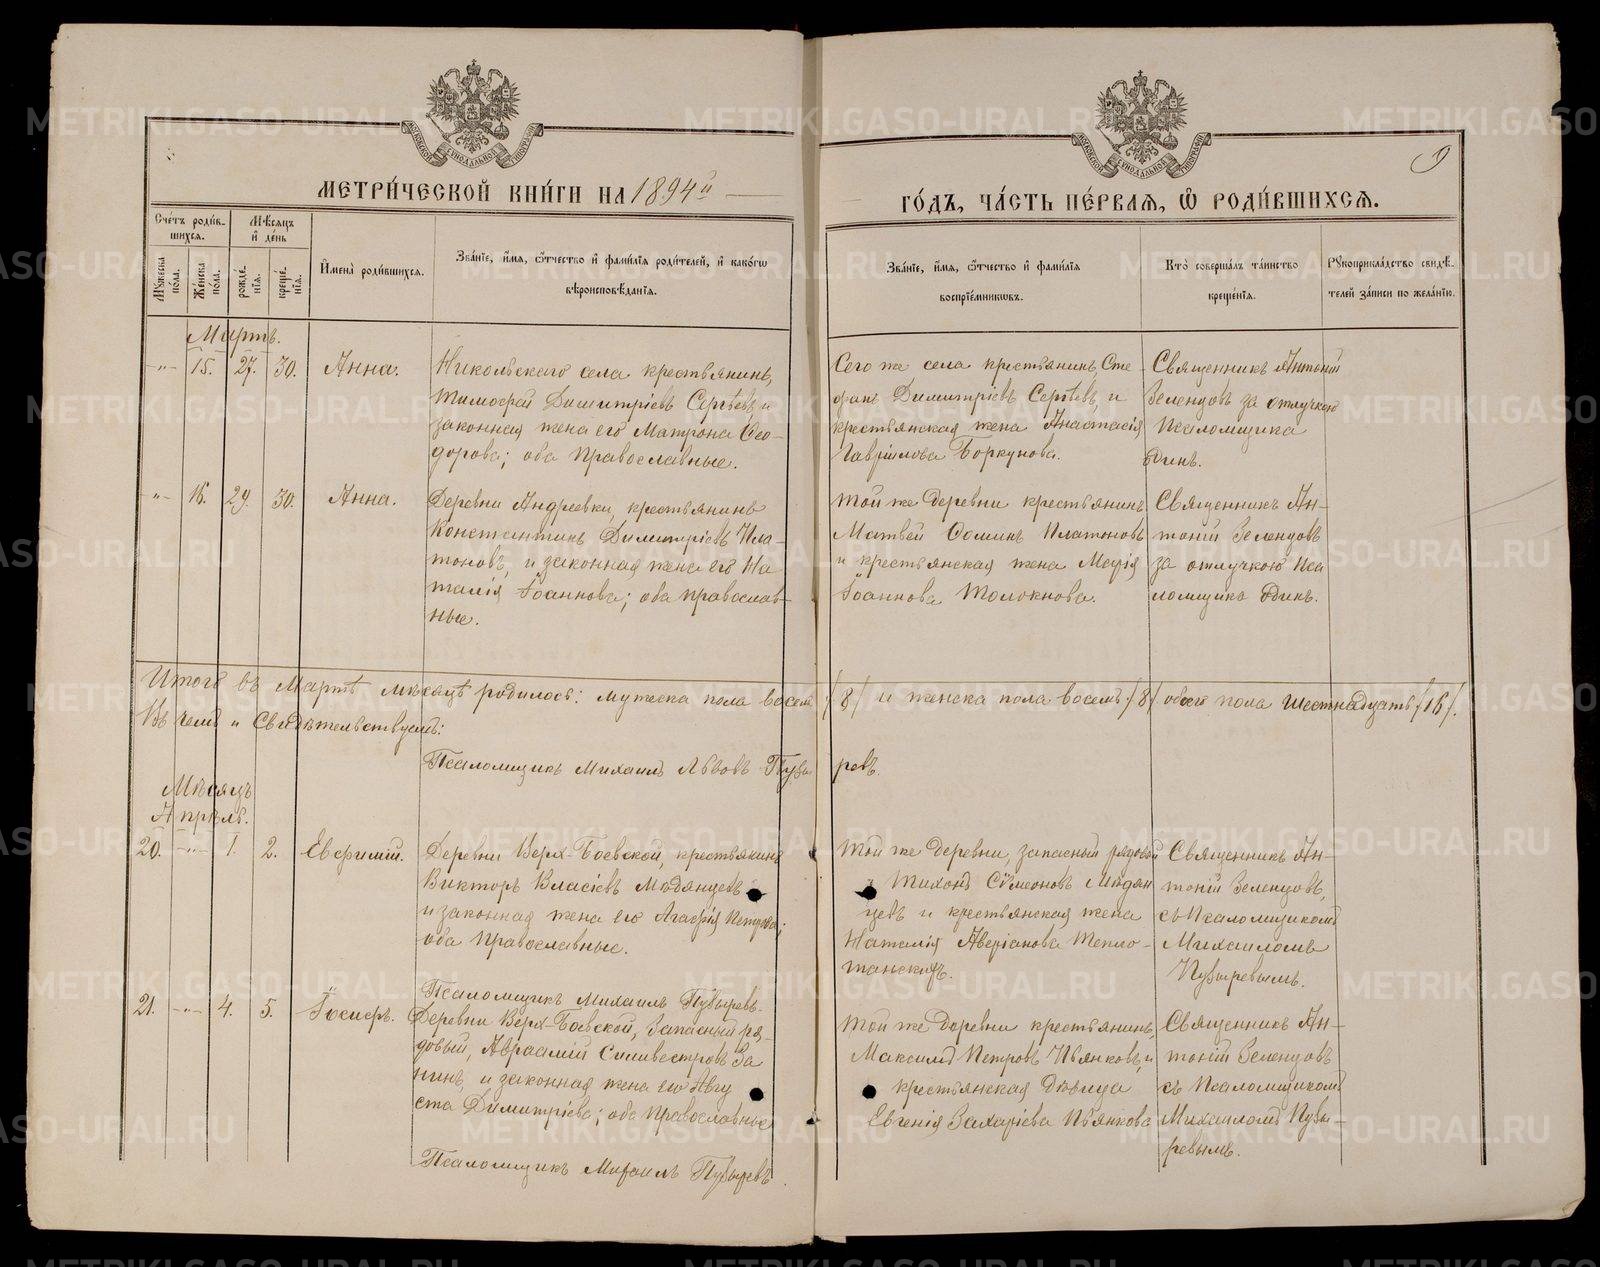 МЕТРИ́ЧЕСКОЙ КНИ́ГИ НА 1894й
ГО́ДЪ, ЧА́СТЬ ПЕ́РВАЯ, Ѡ РОДИ́ВШИХСЯ.
9
МОСКОВСКОЙ СѴНОДАЛЬНОЙ ТИПОГРАФІИ
МОСКОВСКОЙ СѴНОДАЛЬНОЙ ТИПОГРАФІИ
Сче́тъ роди́в-
шихся.
Мѣ́сяцъ
и҆ де́нь
Мꙋ́жеска по́ла.
Же́нска по́ла.
рожде́-
нїя.
креще́-
нїя.
И҆мена̀ роди́вшихся.
Зва́нїе, и҆́мя, ѻ҆́тчество и҆ фами́лїя роди́телей, и҆ како́гѡ
вѣроисповѣ́данїя.
Зва́нїе, и҆́мя, ѻ҆́тчество и҆ фами́лїя
воспрїе́мникѡвъ.
Кто̀ соверша́лъ та́инство
креще́нїя.
Рꙋкоприкла́дство свидѣ́-
телей за́писи по жела́нїю.
Мартъ.
-"- 15. 27. 30. Анна.
Никольскаго села крестьянинъ,
Тимофей Димитріевъ Сергѣевъ и
законная жена его Матрона Ѳео-
дорова; оба Православные.
Сего же села крестьянинъ, Сте-
фанъ Димитріевъ Сергѣевъ, и
крестьянская жена Анастасія
Гавріилова Боркунова.
Священникъ Антоній
Зеленцовъ за отлучкою
Псаломщика
Одинъ.
-"- 16. 29. 30. Анна.
Деревни Андреевки, крестьянинъ
Константинъ Димитріевъ Пла-
тоновъ, и законная жена его На
талія Іоаннова; оба православ-
ные.
Той же деревни крестьянинъ
Матвей Ѳоминъ Платоновъ
и крестьянская жена Марія
Іоаннова Толокнова.
Священникъ Ан-
тоній Зеленцовъ
за отлучкою Пса
ломщика Одинъ.
Итого въ Мартѣ мѣсяцѣ родилось: мужеска пола восемь /8/ и женска пола восемь /8/ обоего пола шестнадцать /16/.
Въ чемъ и Свидѣтельствуемъ:
Псаломщикъ Михаилъ Львовъ Пузы ревъ.
Мѣсяцъ
Апрѣль.
20. -"- 1. 2. Евфимій.
Деревни Верх-Боевской, крестьянинъ
Викторъ Власіевъ Мѣдянцевъ
и законная жена его Агафія Петрова;
оба Православные.
Псаломщикъ Михаилъ Пузыревъ.
Той же деревни, запасный рядовой
Тихонъ Сѵмеоновъ Мѣдян
цевъ и крестьянская жена
Наталія Аверіанова Тепло-
Священникъ Ан-
тоній Зеленцовъ,
съ Псаломщикомъ
Михаиломъ
Пузыревымъ.
21. -"- 4. 5. Іосифъ.
Деревни Верх-Боевской, Запасный ря-
довый, Авраамій Силивестровъ За
нинъ, и законная жена его Авгу
ста Димитріева; оба Православные
Псаломщикъ Михаилъ Пузыревъ.
Той же деревни крестьянинъ,
Максимъ Петровъ Пьянковъ, и
крестьянская дѣвица
Евгенія Захаріева Пьянкова
Священникъ Ан-
тоній Зеленцовъ
съ Псаломщикомъ
Михаиломъ Пузы-
ревымъ.
METRIKI.GASO-URAL.RU